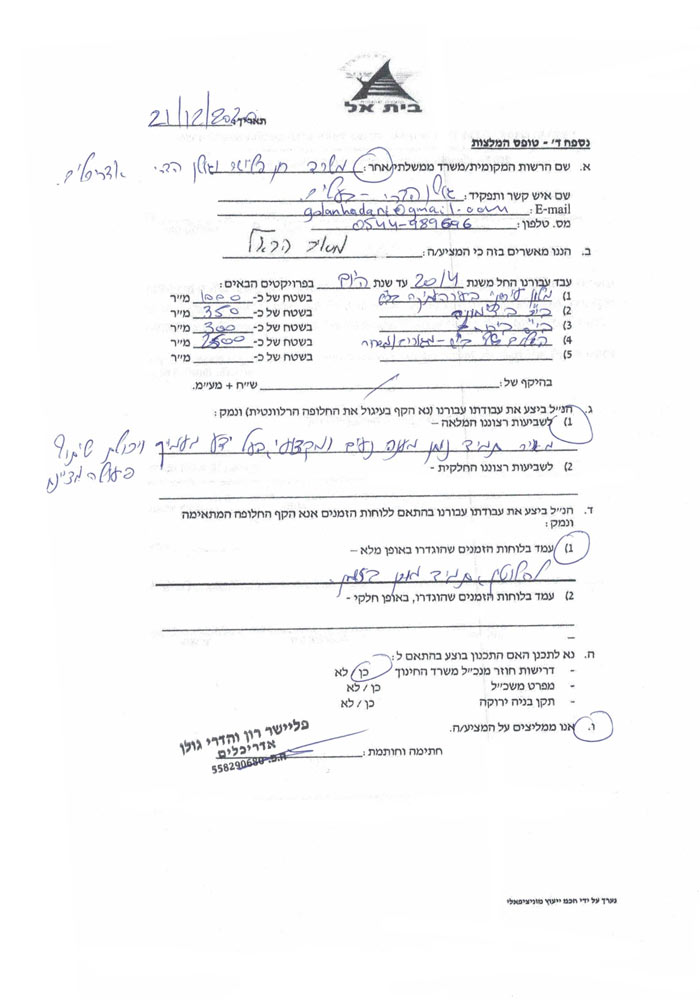 בית אל
תאריך: 21/12/2020
נספח ד' - טופס המלצות
א. שם הרשות המקומית/משרד ממשלתי/אחר: משרד רון פליישר וגולן הדרי אדריכלים.
שם איש קשר ותפקיד: גולן הדרי - בעלים
E-mail: golanhadari@gmail.com
מס. טלפון: 0544-989696
ב. הננו מאשרים בזה כי המציע/ה: הראל
עבד עבורנו החל משנת 2014 עד שנת היום בפרויקטים הבאים:
1) בשטח של כ- מ"ר
2) בשטח של כ- 350 מ"ר
3) בשטח של כ- 300 מ"ר
4) בשטח של כ- 2500 מ"ר
5) בשטח של כ- מ"ר
בהיקף של: ש"ח + מע"מ.
ג. הנ"ל ביצע את עבודתו עבורנו (נא הקף בעיגול את החלופה הרלוונטית) ונמק:
1) לשביעות רצוננו המלאה –
תמיד נותן מענה נעים ומקצועי, בעל ידע מעמיק ויכולת שיתוף
פעולה מצויינת
2) לשביעות רצוננו החלקית -
ד. הנ"ל ביצע את עבודתו עבורנו בהתאם ללוחות הזמנים אנא הקף החלופה המתאימה
ונמק:
1) עמד בלוחות הזמנים שהוגדרו באופן מלא –
לחלוטין, תמיד מוכן בזמן.
2) עמד בלוחות הזמנים שהוגדרו, באופן חלקי -
–
ה. נא לתכנן האם התכנון בוצע בהתאם ל:
- דרישות חוזר מנכ"ל משרד החינוך כן / לא
- מפרט משכ"ל כן / לא
- תקן בניה ירוקה כן / לא
ו. אנו ממליצים על המציע/ה.
חתימה וחותמת:
פליישר רון והדרי גולן
אדריכלים
ח.פ. 558290680
נערך על ידי חכמ ייעוץ מוניציפאלי